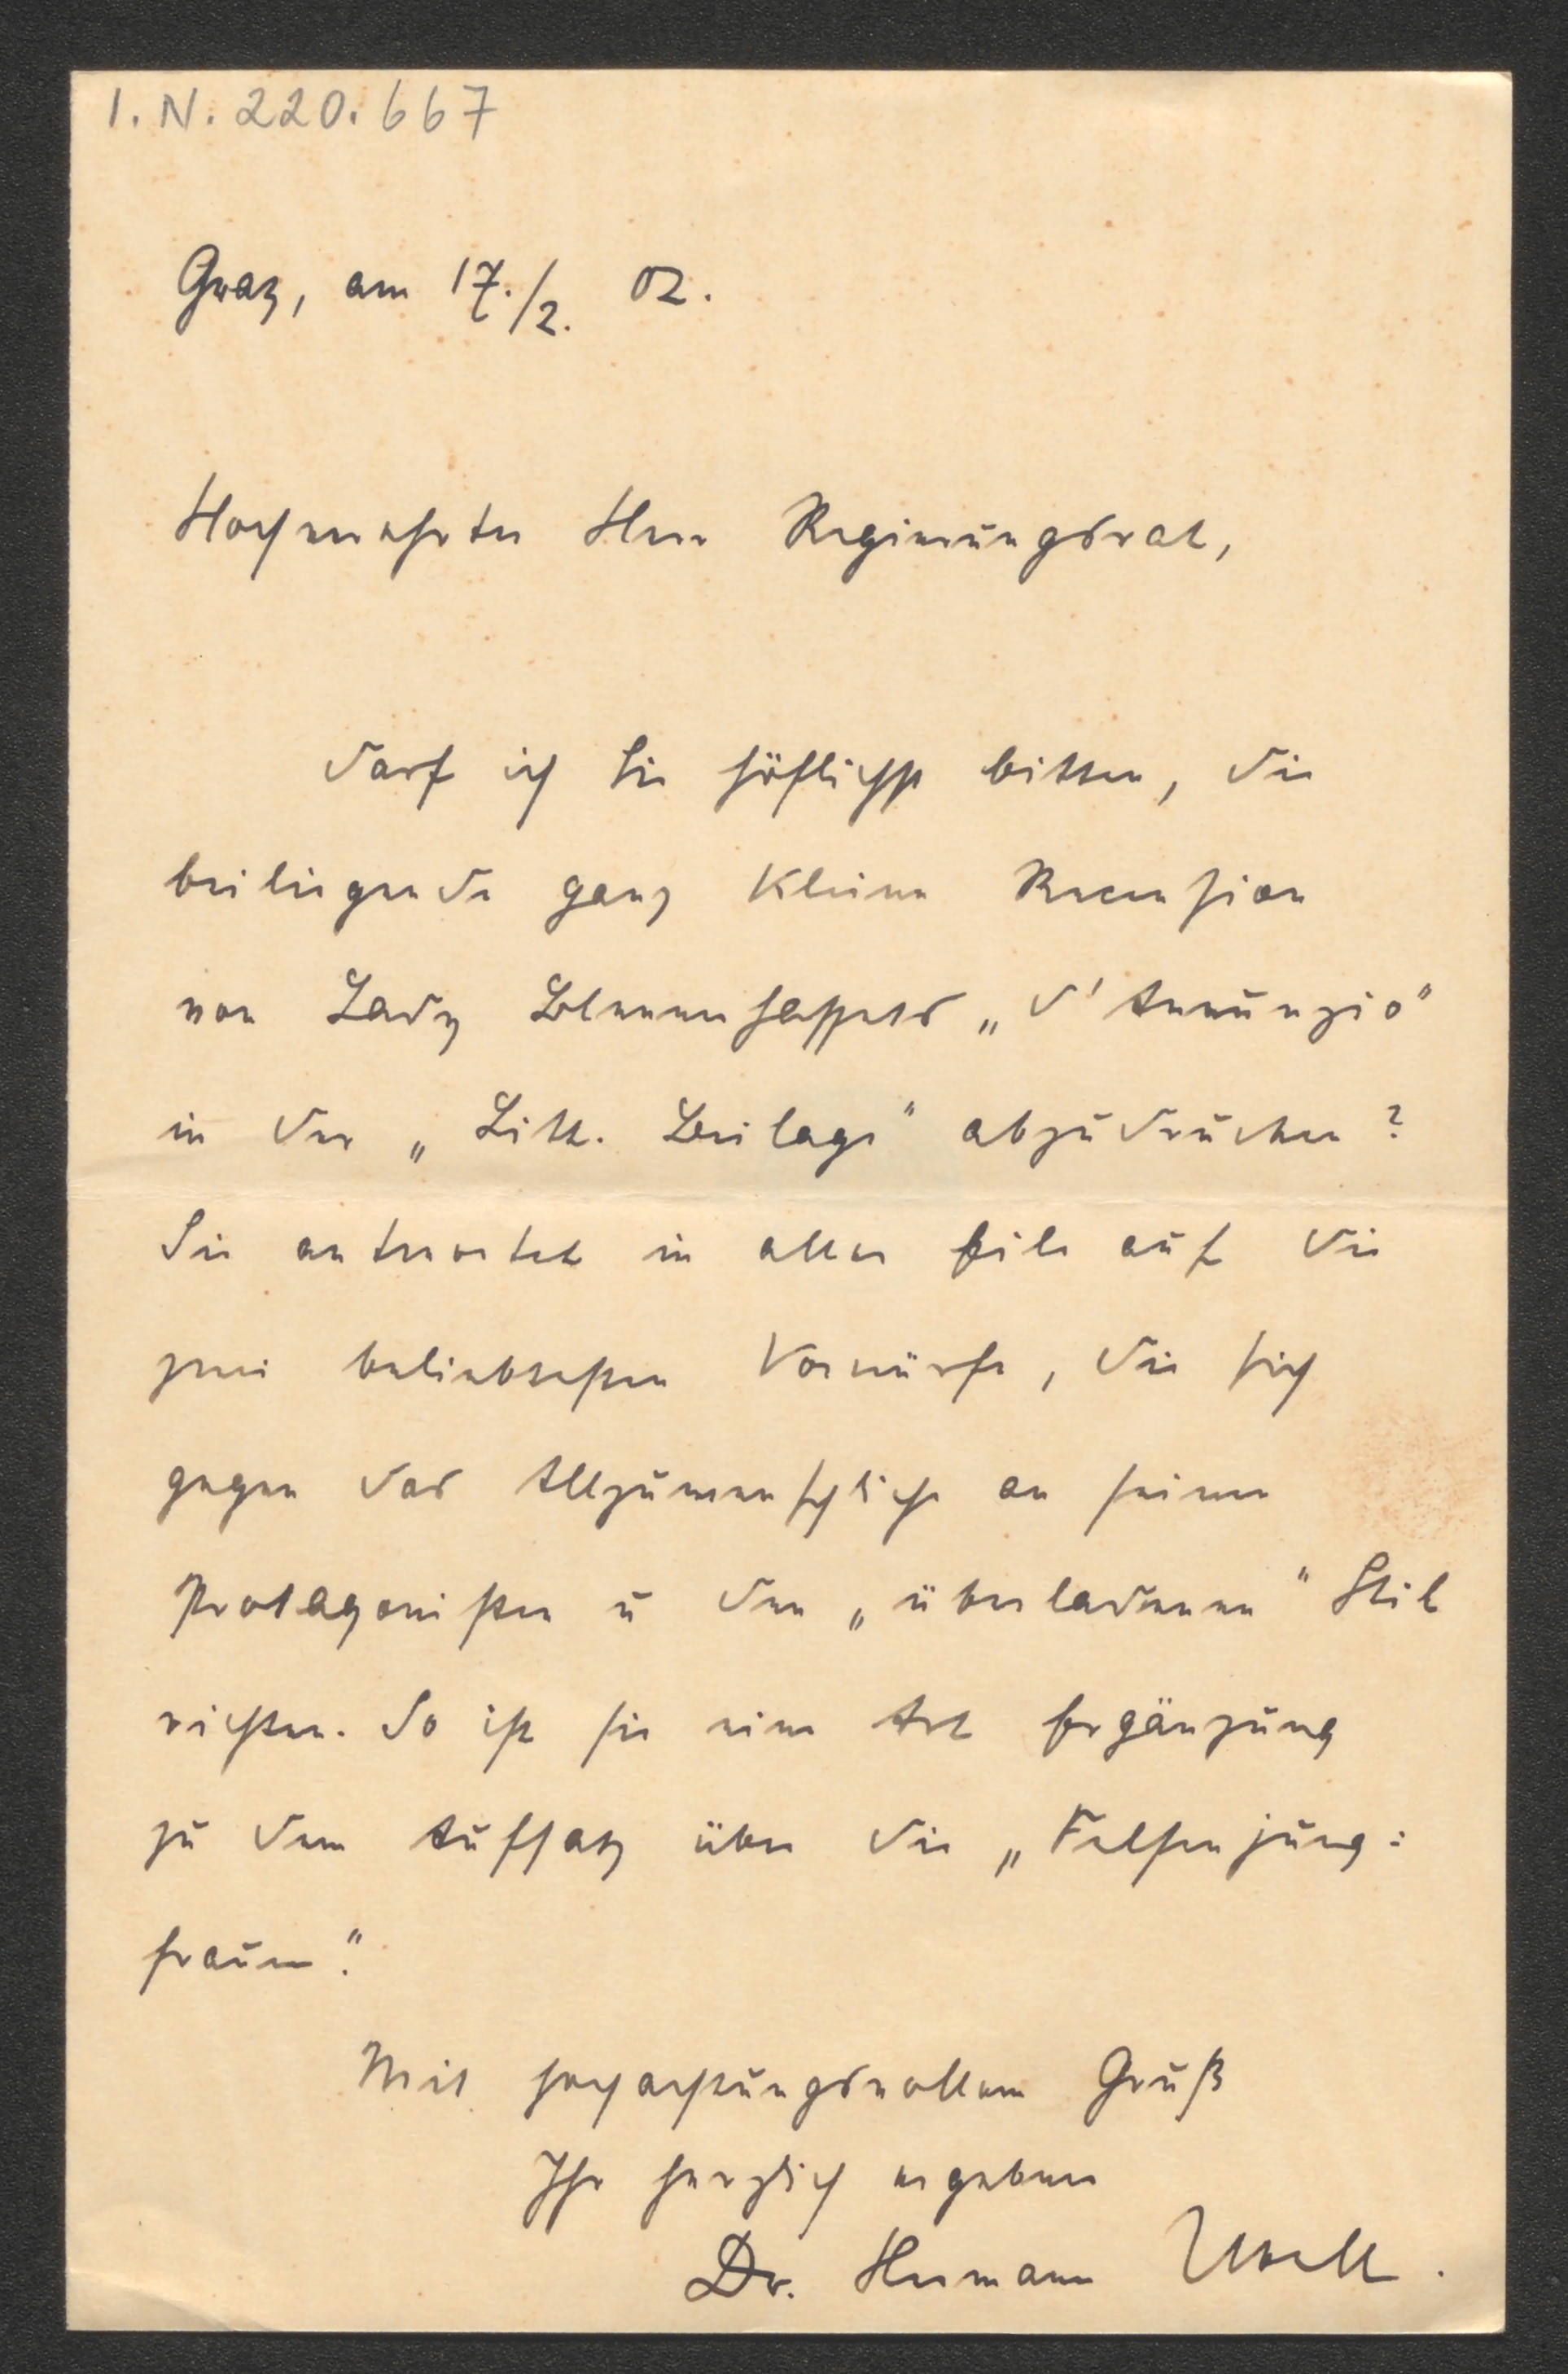 I. N. 220.667
Graz, am 17./2. 02.
Hochverehrter Herr Regierungsrat,
darf ich Sie höflichst bitten, die
beiliegende ganz kleine Recension
von Lady Blennerhassetts „d'Annunzio"
in der „Litt. Beilage" abzudrucken?
Sie antwortet in aller Eile auf die
zwei beliebtesten Vorwürfe, die sich
gegen das Allzumenschliche an seinen
Protagonisten u den „überladenen" Stil
richten. So ist sie eine Art Ergänzung
zu dem Aufsatz über die „Felsenjung:
frauen".
Mit hochachtungsvollem Gruß
Ihr herzlich ergebener
Dr. Hermann Ubell.